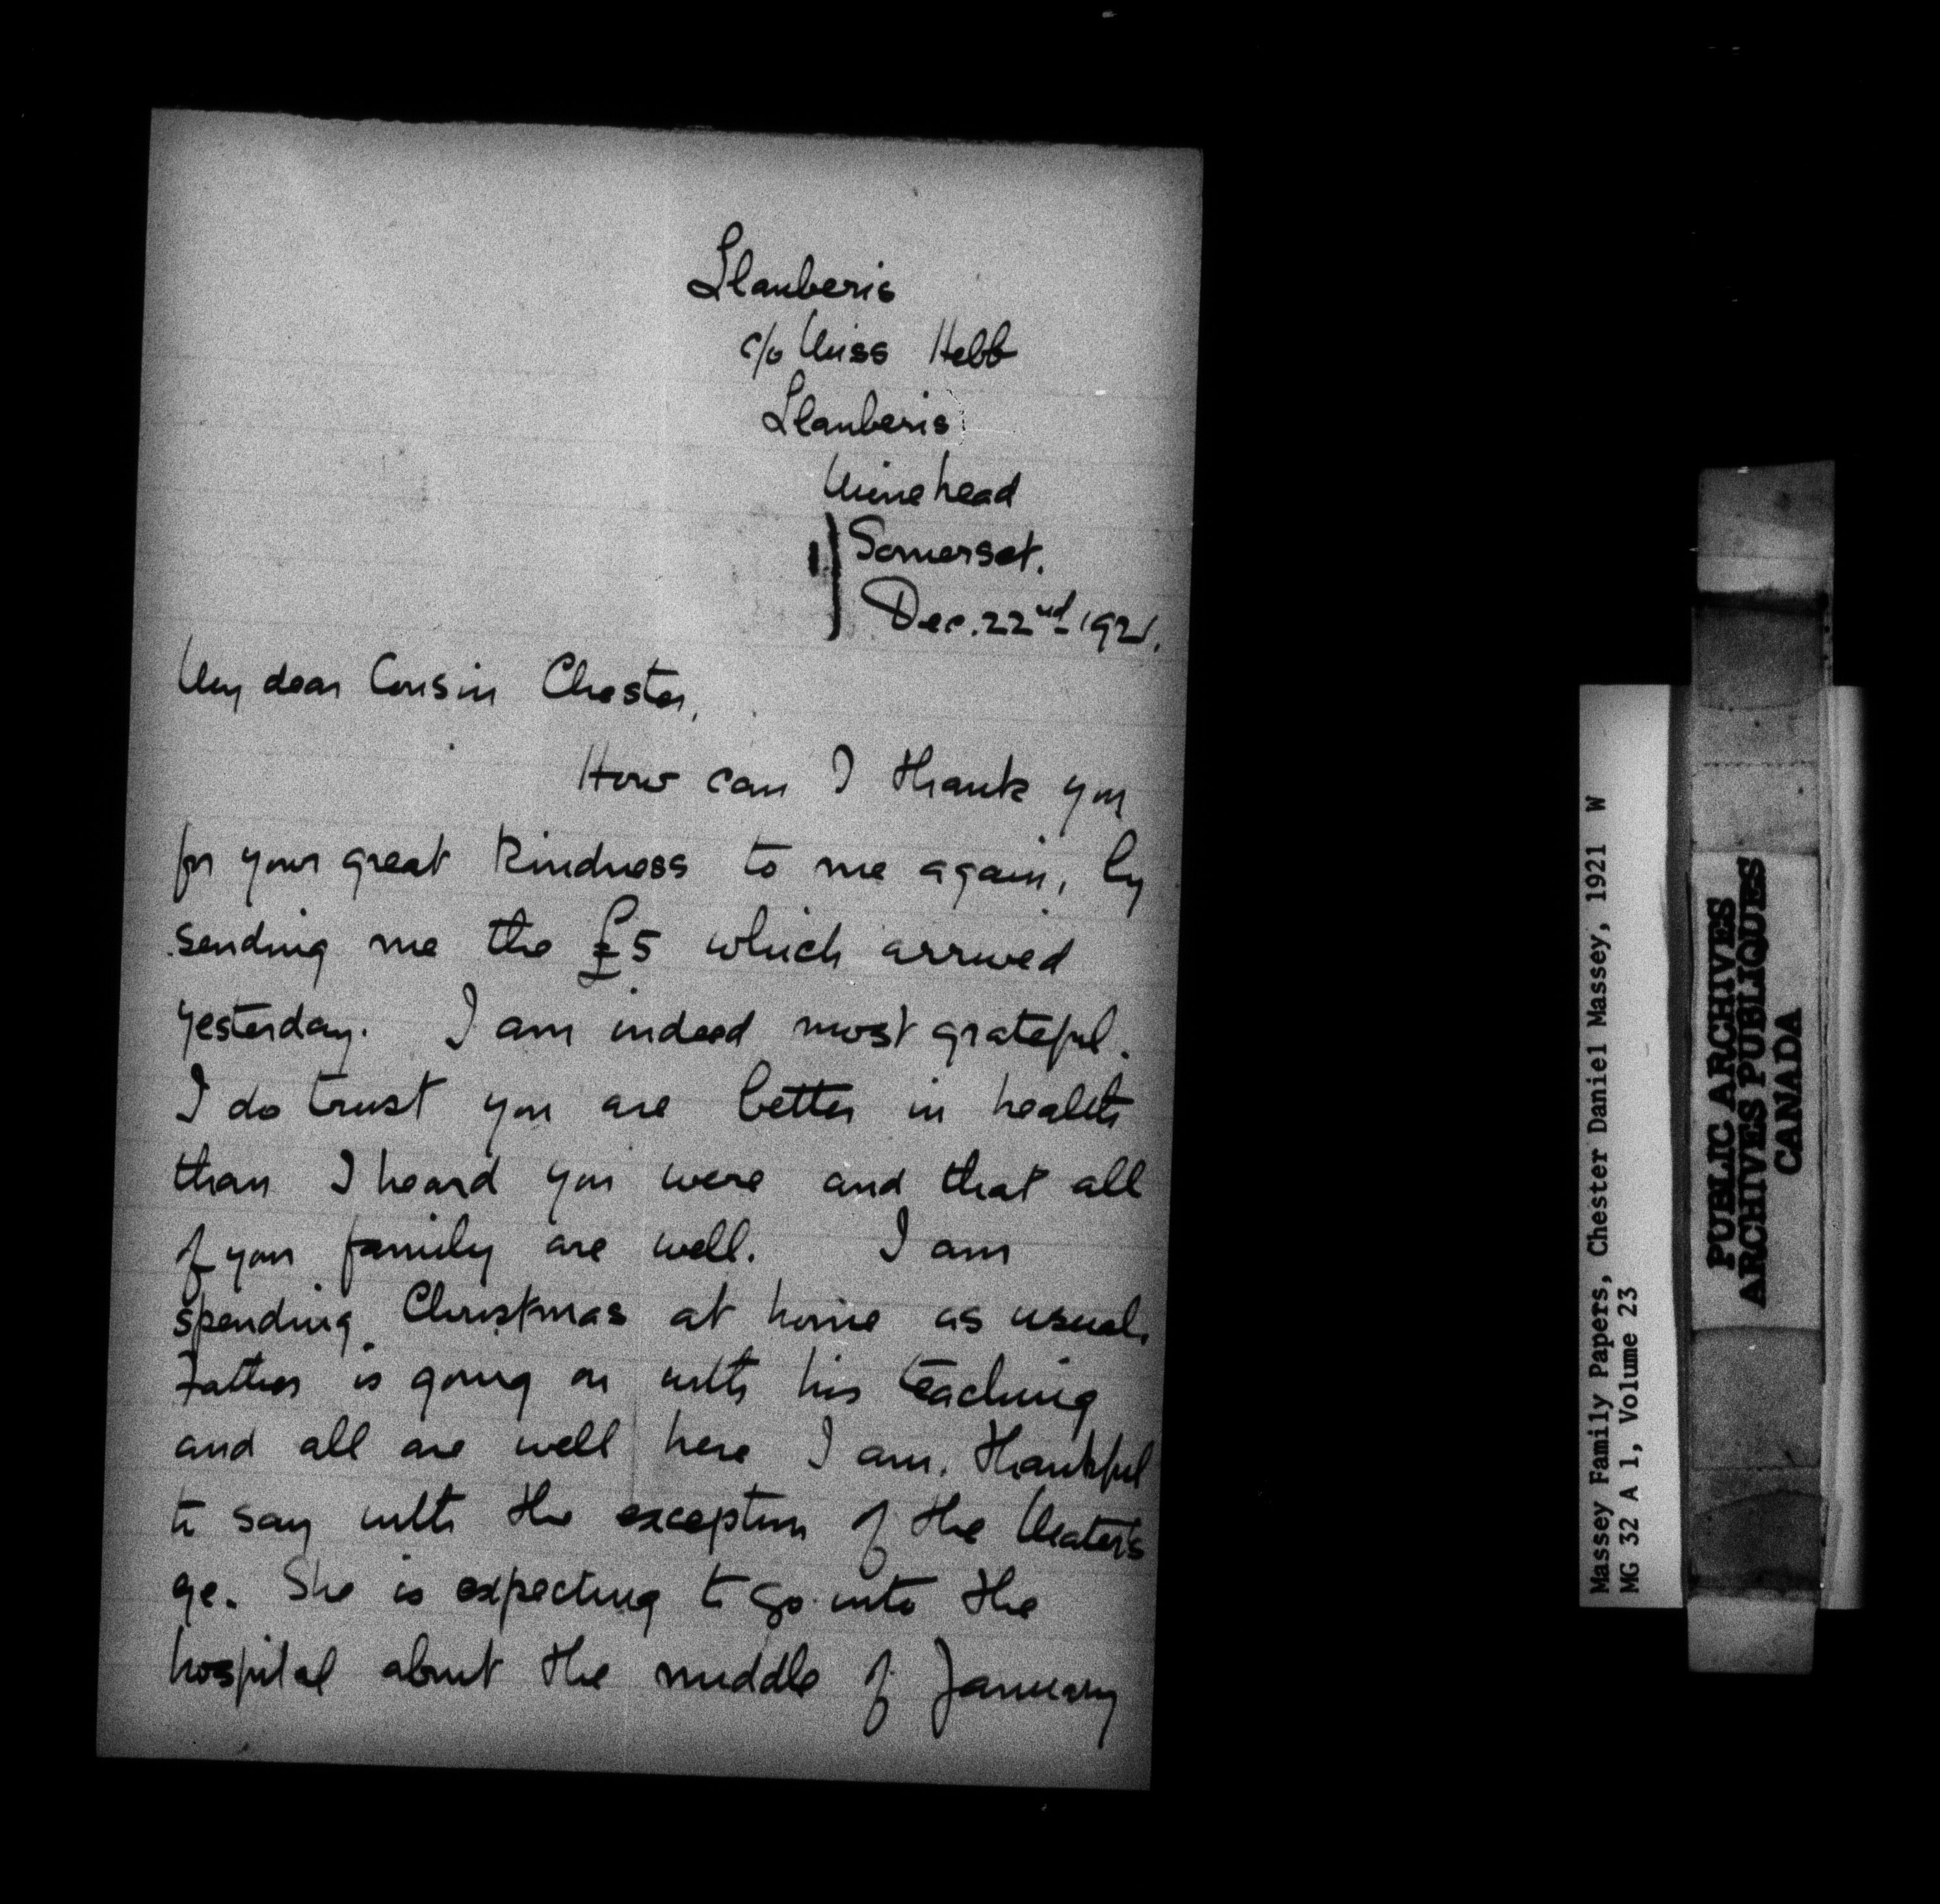 Llanberis
c/o Miss Hebb
Llanberis
Minehead
Somerset.
Dec. 22nd 1921.
My dear Cousin Chester,
How can I thank you
for your great kindness to me again, by
sending me the £5 which arrived
yesterday. I am indeed most grateful.
I do trust you are better in health
than I heard you were and that all
of your family are well. I am
spending Christmas at home as usual.
Father is going on with his teaching
and all are well here I am, thankful
to say with the exception of the
ge. She is expecting to go into the
hospital about the middle of January
Massey Family Papers, Chester Daniel Massey, 1921 W
MG 32 A 1, Volume 23
PUBLIC ARCHIVES
ARCHIVES PUBLIQUES
CANADA